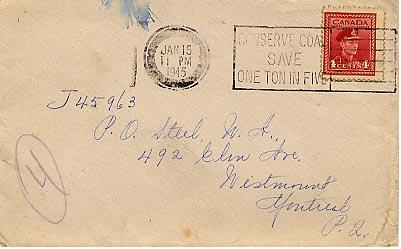 CANADA
4 CENTS 4
JAN 15
11 PM
1945
CONSERVE COAL
SAVE
ONE TON IN FIVE
J45963
P.O. Steel, W. A.,
492 Elm Ave.
Westmount
Montreal
P. Q.
4